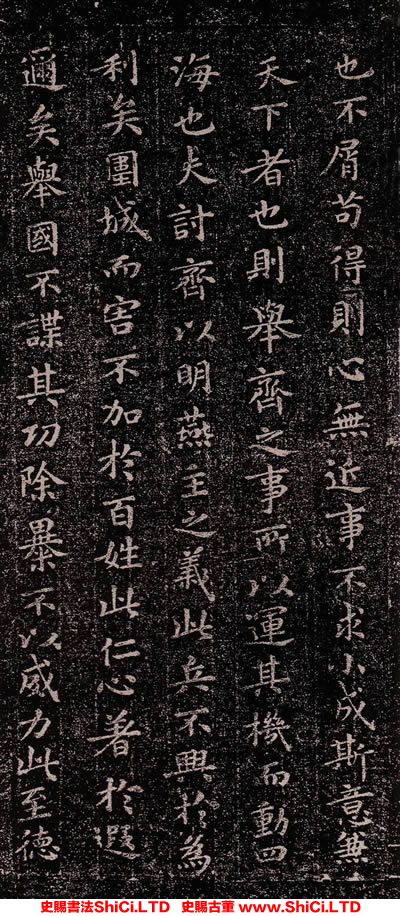 也不屑苟得則心無近事不求小成斯意兼
天下者也則舉齊之事所以運其機而動四
海也夫討齊以明燕主之義此兵不興於為
利矣圍城而害不加於百姓此仁心著於遐
邇矣舉國不謀其功除暴不以威力此至德
史賜書法ShiCi.LTD 史賜古董 www.ShiCi.LTD